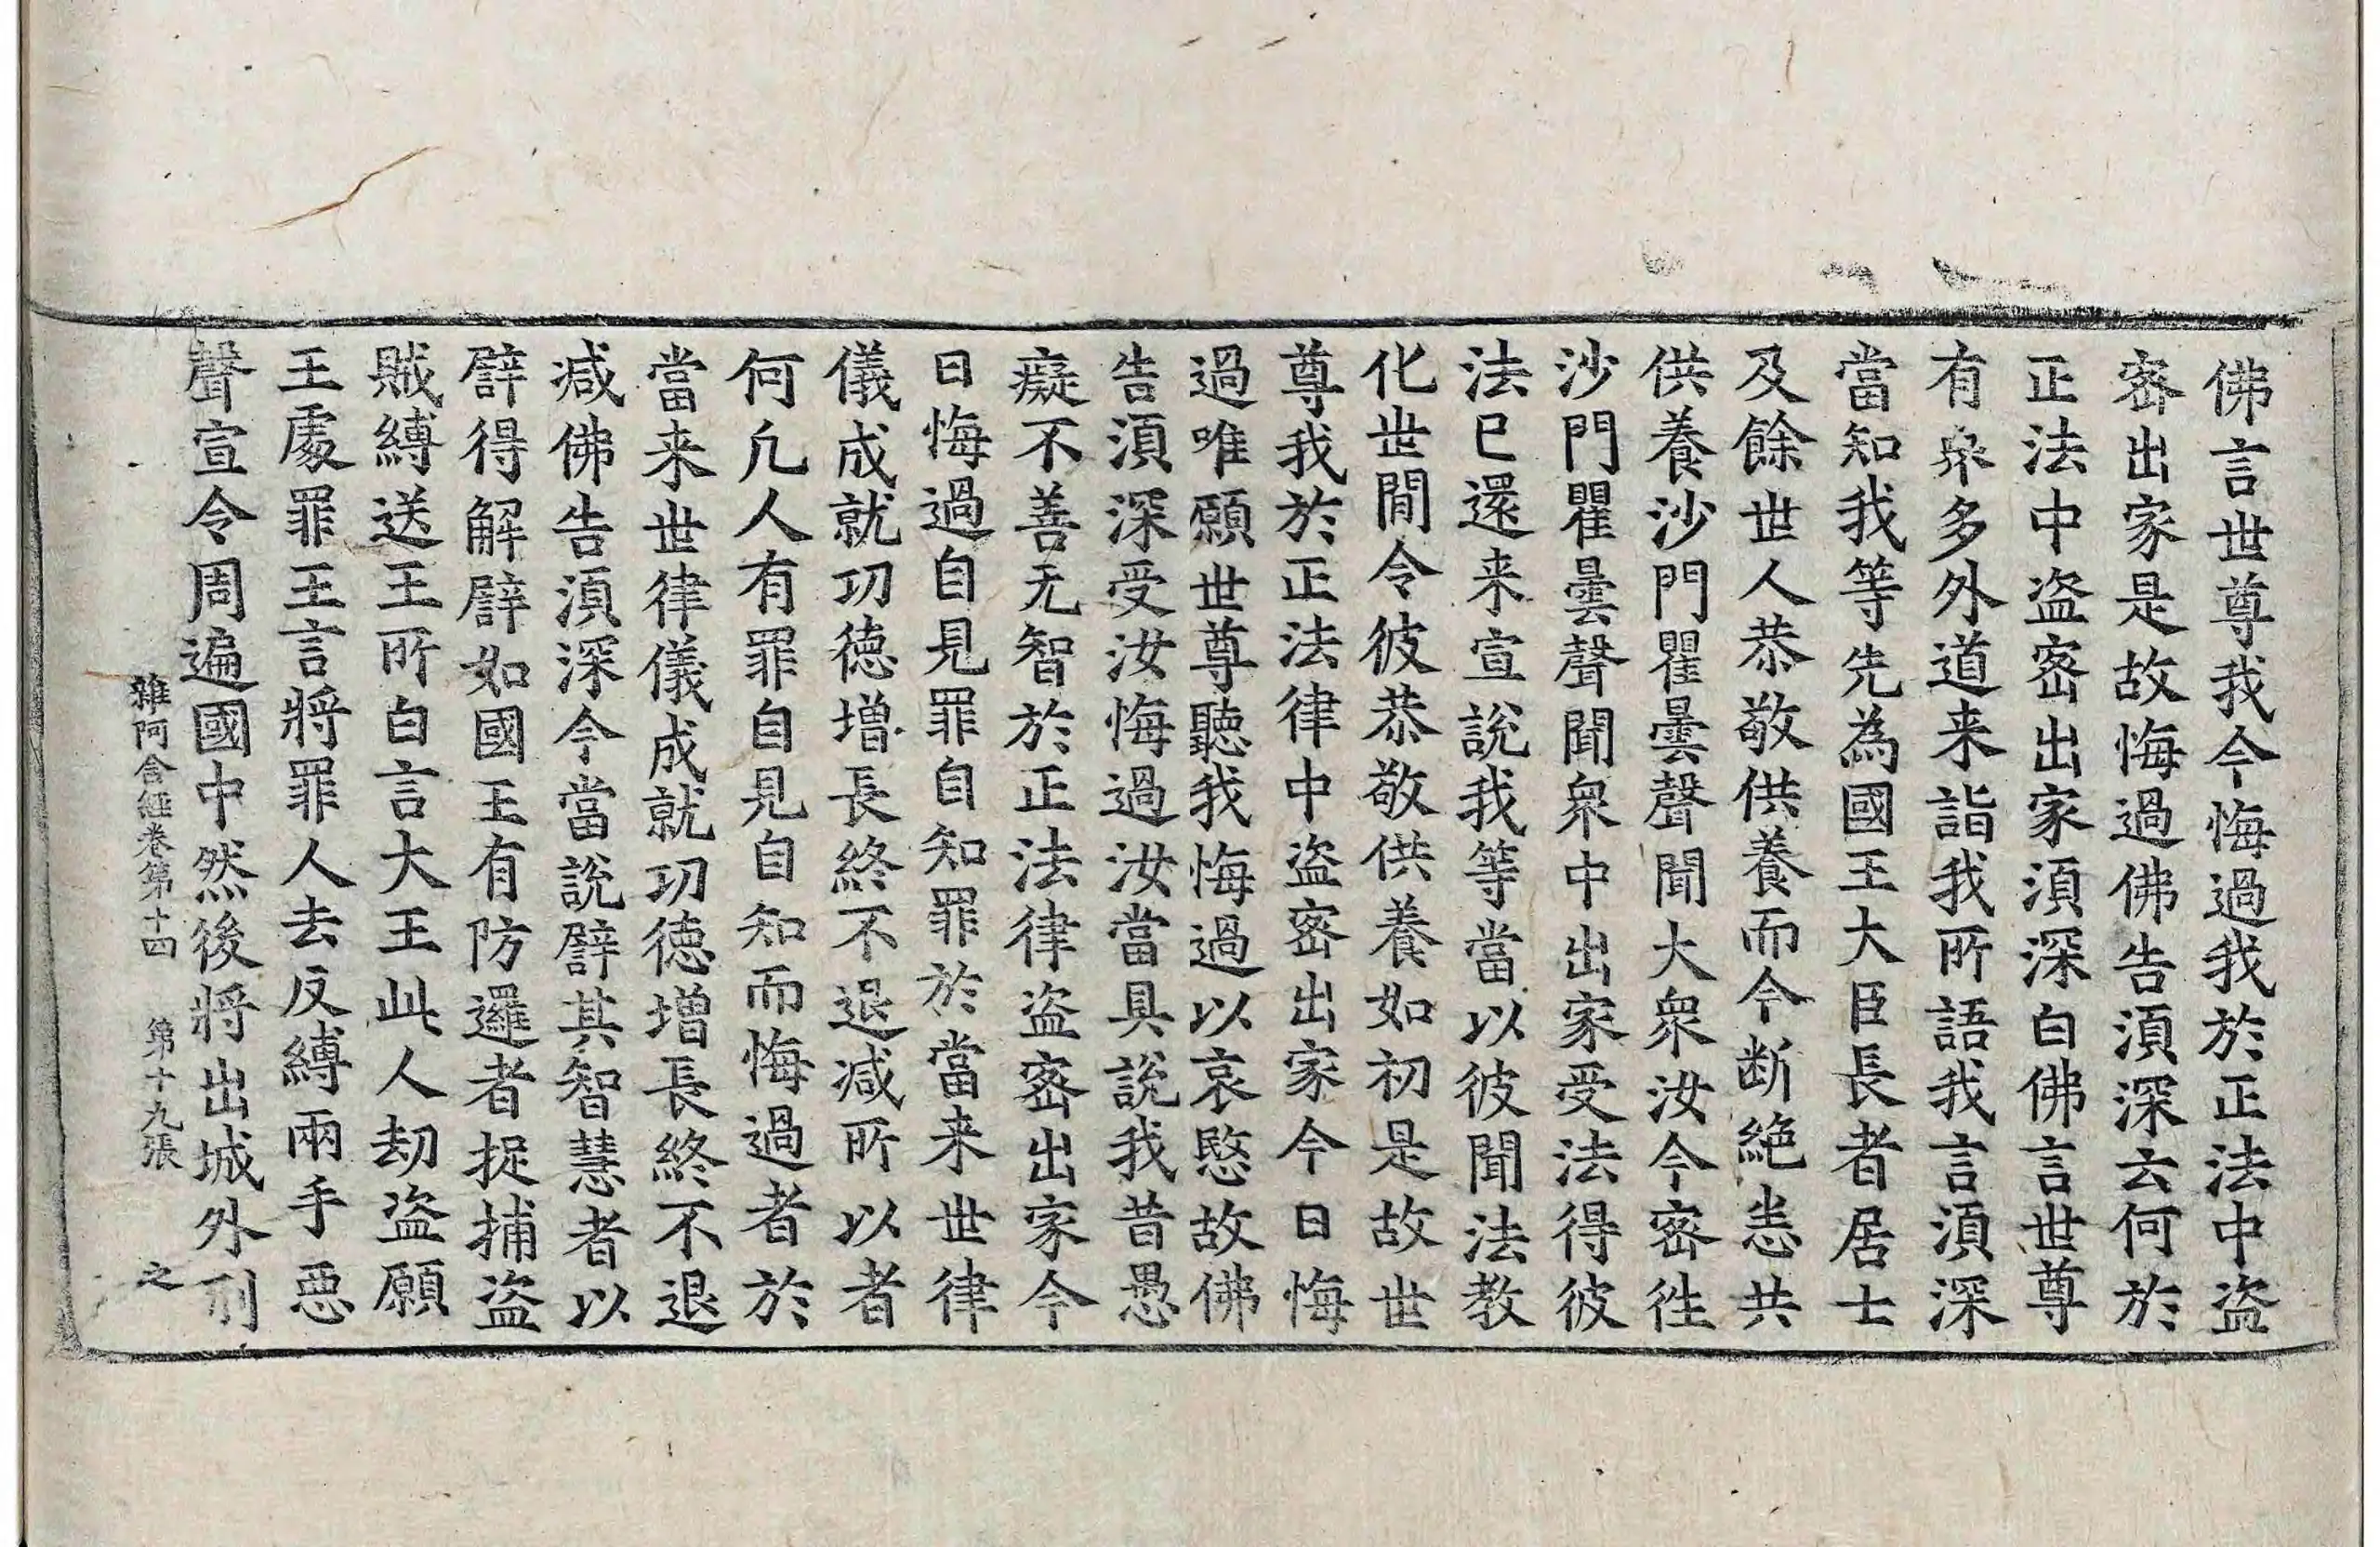 佛言世尊我今悔過我於正法中盗
宻出家是故悔過佛告湏深云何於
正法中盗宻出家湏深白佛言世尊
有衆多外道来詣我所語我言湏深
當知我等先為國王大臣長者居士
及餘世人恭敬供養而今断絶悉共
供養沙門瞿曇聲聞大衆汝今宻徃
沙門瞿曇聲聞衆中出家受法得彼
法已還来宣說我等當以彼聞法教
化世間令彼恭敬供養如初是故世
尊我於正法律中盗宻出家今日悔
過唯願世尊聽我悔過以哀愍故佛
告湏深受汝悔過汝當具說我昔愚
癡不善无智於正法律盗宻出家今
日悔過自見罪自知罪於當来世律
儀成就功徳增長終不退减所以者
何凢人有罪自見自知而悔過者於
當来世律儀成就功徳增長終不退
减佛告湏深今當說譬其智慧者以
譬得解譬如國王有防邏者捉捕盗
賊縛送王所白言大王此人劫盗願
王處罪王言將罪人去反縛兩手惡
聲宣令周遍國中然後將出城外刑
雜阿含經卷第十四 第十九張 之